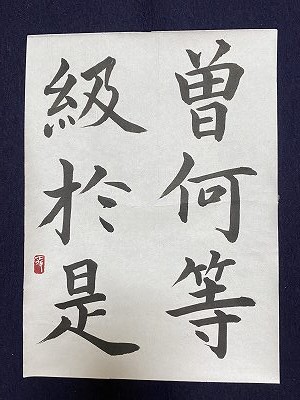 曽何等
級於是